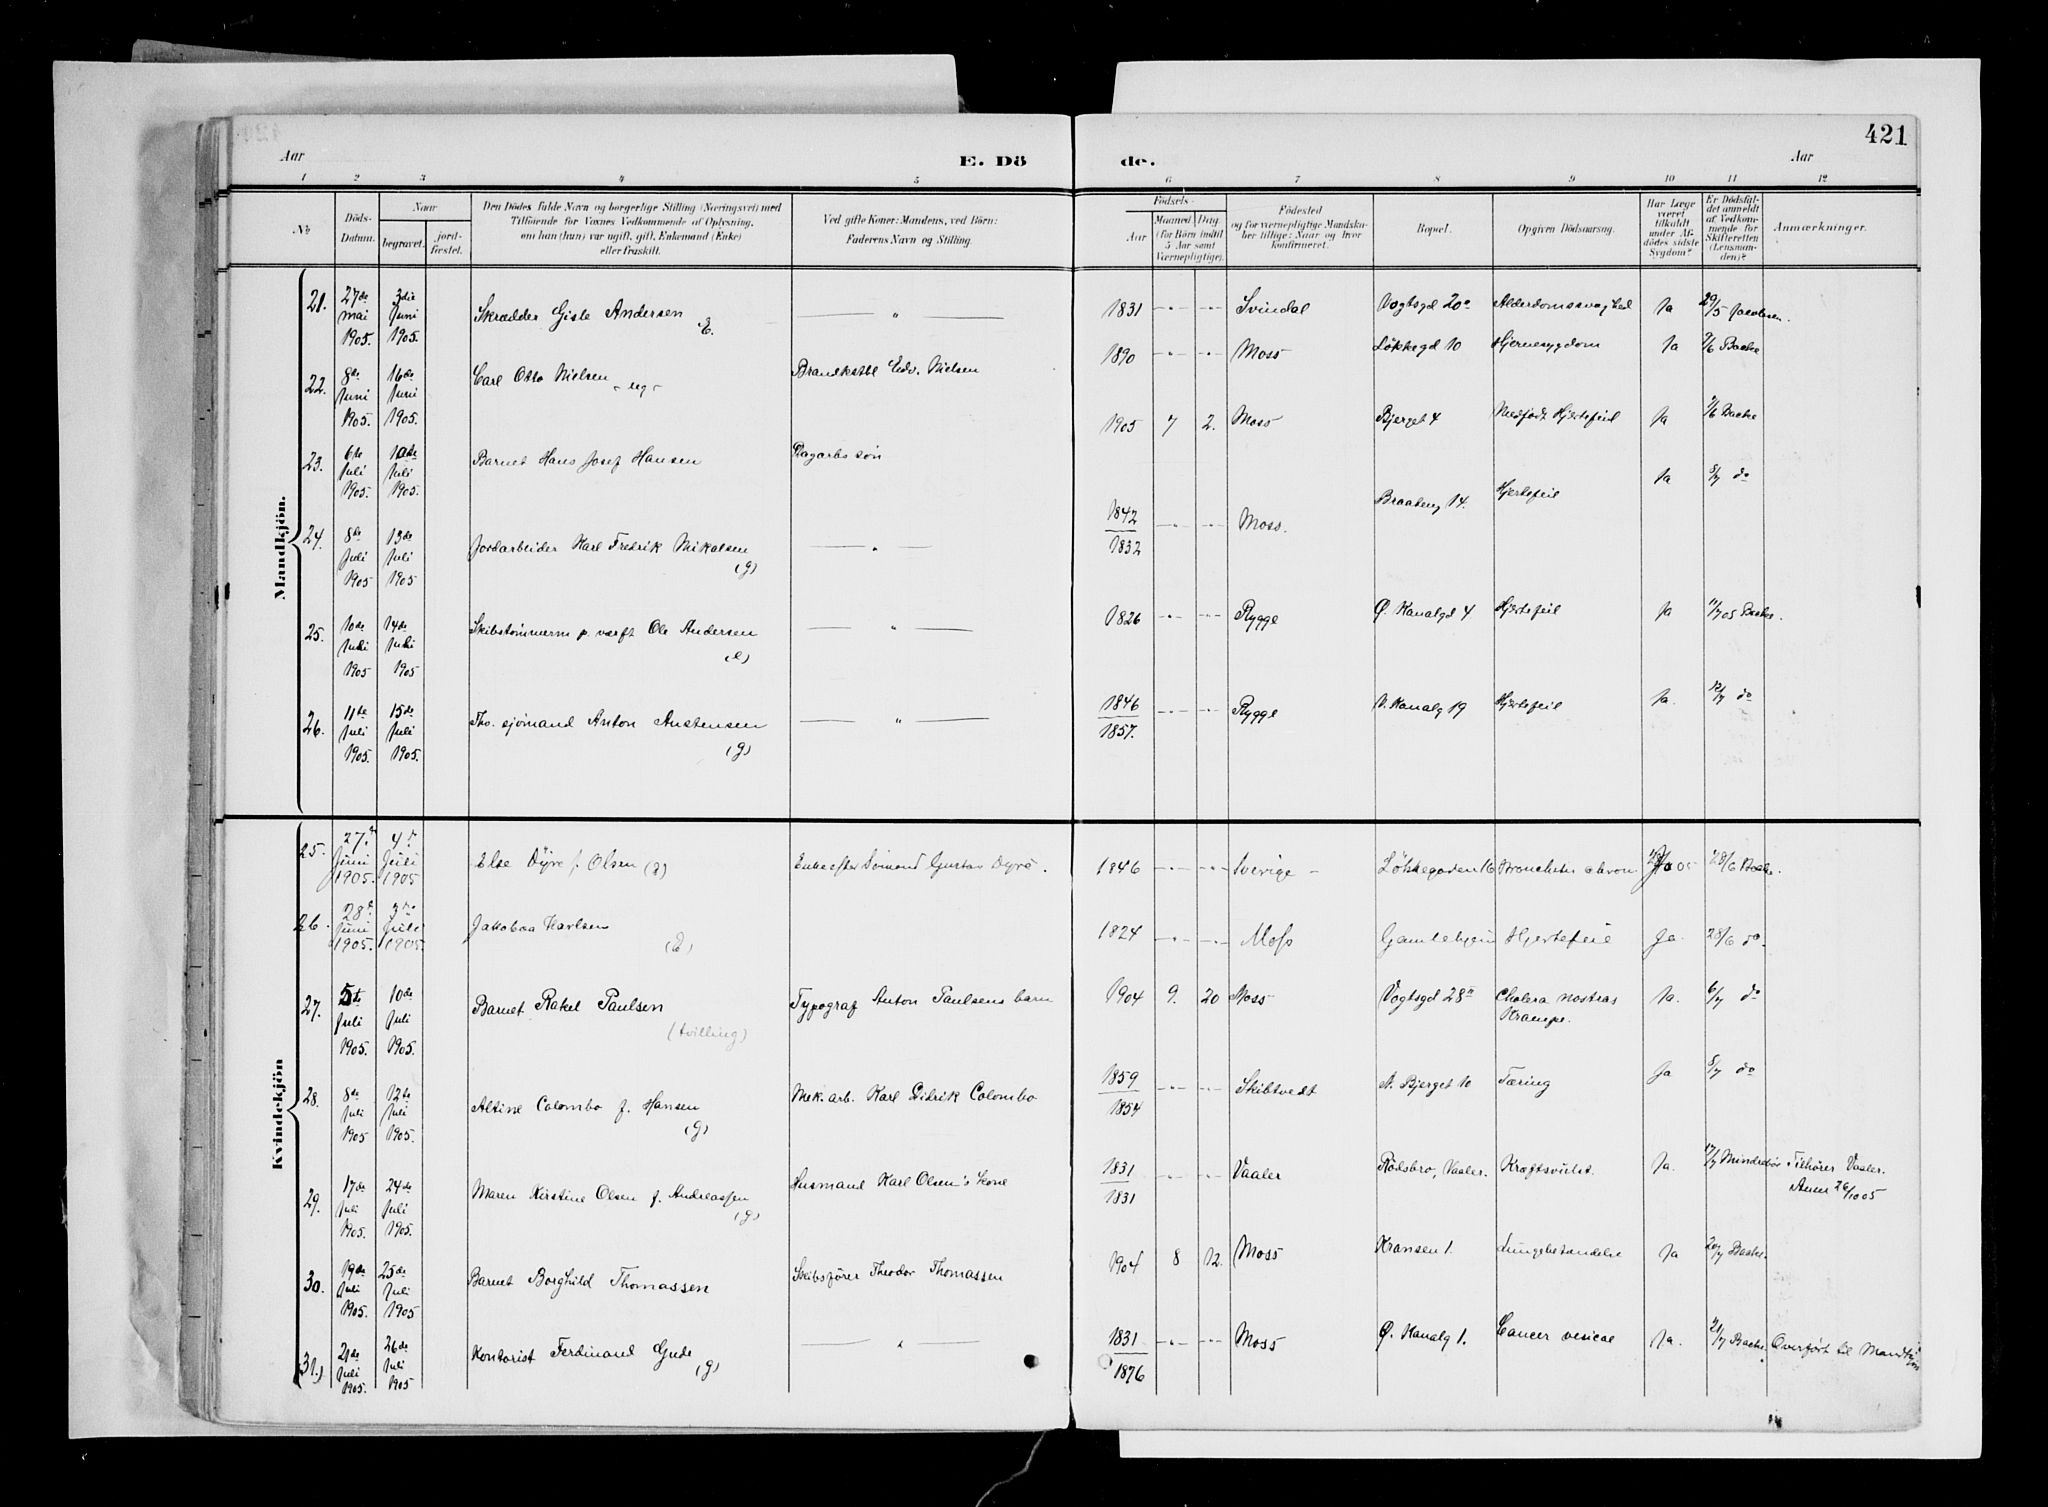 421
Aar E. Dö de. Aar
1 2 3 4 5 6 7 8 9 10 11 12
No Döds-Datum. Naar begravet. jordfæstet. Den Dödes fulde Navn og borgerlige Stilling (Næringsvei) med Tilföiende for Voxnes Vedkommende af Oplysning, om han (hun) var ugift, gift, Enkemand (Enke) eller fraskilt. Ved gifte Koner: Mandens, ved Börn: Faderens Navn og Stilling. Födsels- Aar Maaned. Dag. (for Börn indtil 5 Aar samt Værnepligtige). Födested og for værnepligtige Mandskaber tillige: Naar og hvor Konfirmeret. Bopæl. Opgiven Dödsaarsag. Har Læge været tilkaldt under Afdödes sidste Sygdom? Er Dödsfaldet anmeldt af Vedkommende for Skifteretten (Lensmanden)? Anmærkninger.
Mandkjön.
21. 27de mai 1905. 3die Juni 1905. Skrædder Gisle Andersen E. — " — 1831 Svindal Vogtsgd 20a Alderdomssvaghed Ja 29/5 Jacobsen.
22. 8de Juni 1905. 16de Juni 1905. Carl Otto Nielsen - ug - Brandkstbl Edv. Nielsen 1890 Moss Løkkegd 10 Hjernesygdom Ja 9/6 Bache
23. 6te Juli 1905. 10de Juli 1905. Barnet Hans Josef Hansen Dagarbs søn 1905 7 2. Moss Bjerget 4 Medfødt Hjertefeil Ja 7/6 Bache
24. 8de Juli 1905 13de Juli 1905 Jordarbeider Karl Fredrik Mikalsen (g) — " — 1842 1832 Moss. Braateng 14. Hjertefeil Ja 8/7 do
25. 10de Juli 1905 14de Juli 1905 Skibstømmerm p. værft Ole Andersen (e) — " — 1826 Rygge Ø. Kanalgd 4 Hjertefeil Ja 11/7 05 Bache.
26. 11de Juli 1905. 15de Juli 1905. Fhv. sjømand Anton Austensen (g) — " — 1846 1857. Rygge V. Kanalg 19 Hjertefeil Ja. 12/7 do
Kvindekjön
25. 27. Juni 1905. 4. Juli 1905 Else Dyre f. Olsen (E) Enke efter Sømand Gustav Dyre. 1846 Sverige - Løkkegaden 16 Bronchitis chron 28/6 Bache.
26. 28. Juni 1905. 3. Juli 1905. Jakobaa Karlsen (E) 1824 Moss Gamlehjem Hjertefeil Ja. 28/6 do.
27. 5te Juli 1905. 10de Juli 1905. Barnet Rakel Paulsen (tvilling) Typograf Anton Paulsens barn 1904 9. 20 Moss Vogtsgd 28 Cholera nostras Krampe. Ja. 6/7 do
28. 8de Juli 1905 12te Juli 1905. Altine Colombo f. Hansen (g) Mek. arb. Karl Didrik Colombo 1859 1854 Skibtvedt N. Bjerget 10 Tæring Ja 8/7 do
29. 17de Juli 1905. 24de Juli 1905. Maren Kirstine Olsen f. Andreassen (g) Husmand Karl Olsen's kone 1831 1831 Vaaler Rødsbro, Vaaler. Kræftsvulst. Ja. 17/7 Mindrebø Tilhører Vaaler. Anm 26/10 05
30. 19de Juli 1905. 25de Juli 1905 Barnet Borghild Thomassen Skibsfører Theodor Thomassen 1904 8 12. Moss Kransen 1. Lungebetændelse Ja 20/7 Bache.
31.) 21de Juli 1905. 26de Juli 1905 Kontorist Ferdinand Gude (g) — " — 1831 1876 Moss Ø. Kanalg 1. Cancer vesicae Ja. 21/7 Bache. Overført til Mandkjøn